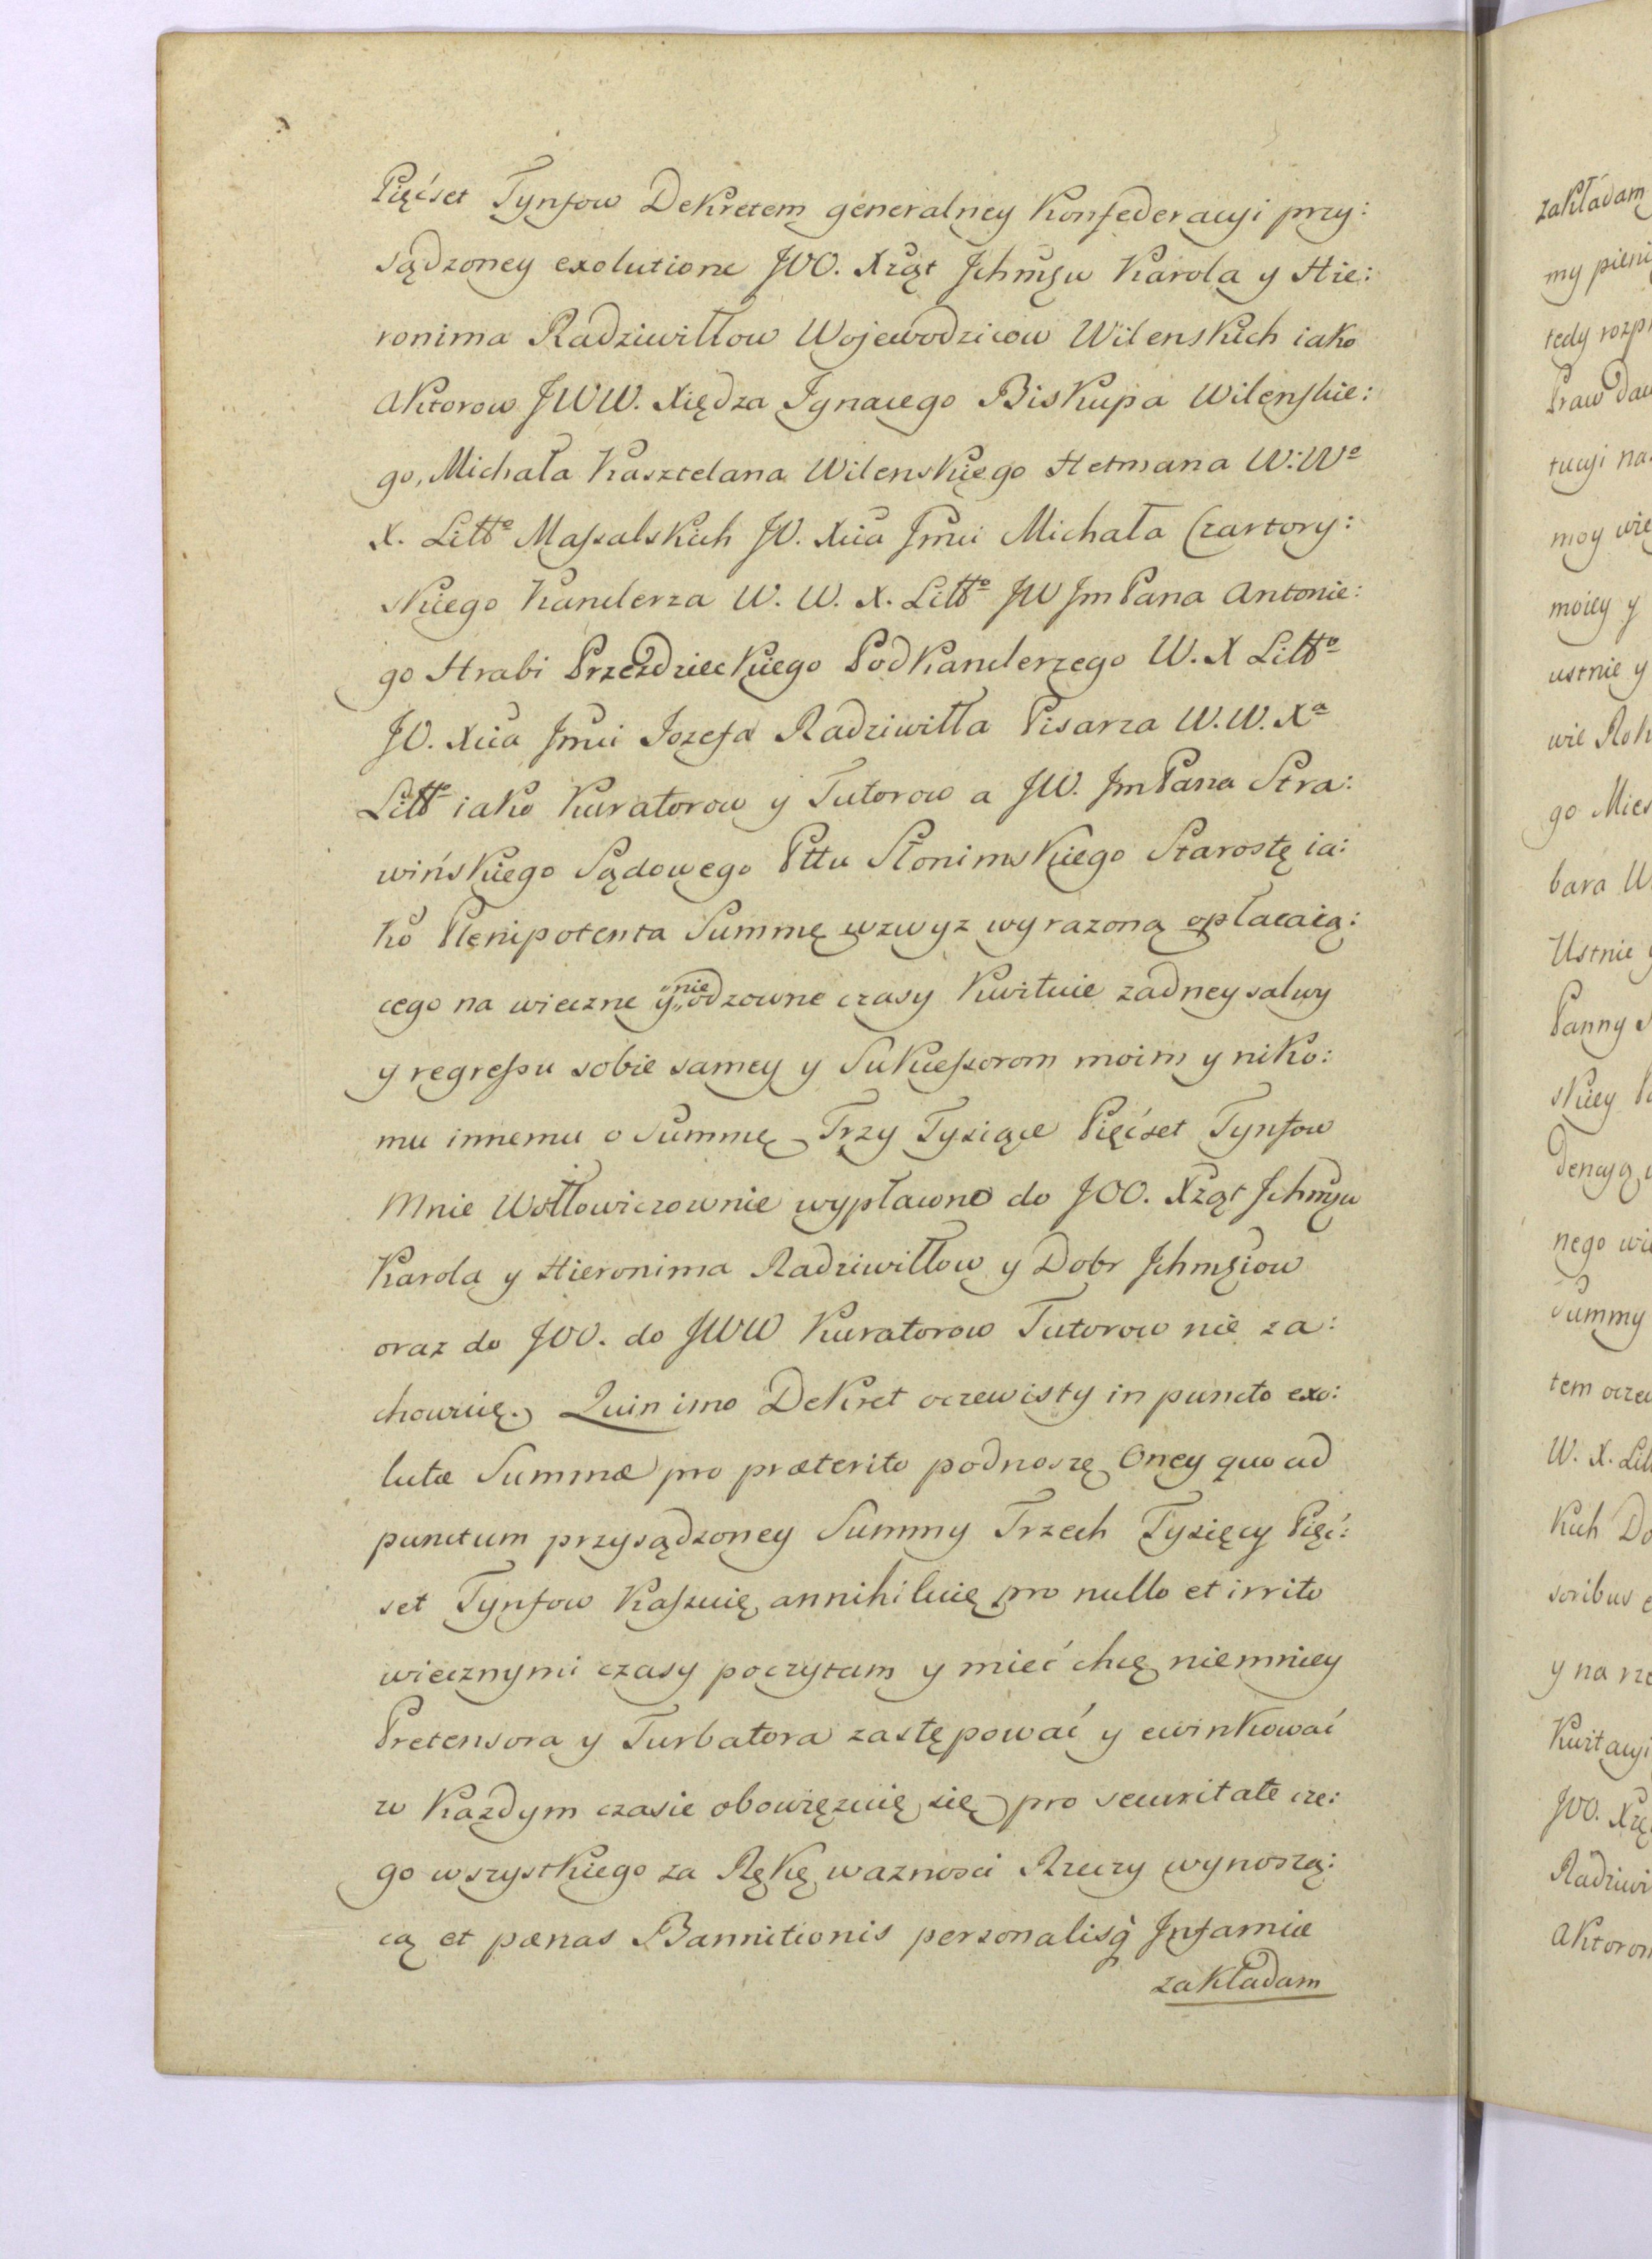 Pięćset Tynfow Dekretem generalney Konfederacyi przy:
sądzoney exolutione JOO. Xząt Jchmśw Karola y Hie:
ronima Radziwiłłow Wojewodzicow Wilenskich iako
Aktorow JWW. Xiędza Ignacego Biskupa Wilenskie:
go, Michała Kasztelana Wilenskiego Hetmana W: Wo
X. Litto Massalskich JO. Xcia Jmci Michała Czartory:
skiego Kanclerza W. W. X. Litto JW JmPana Antonie:
go Hrabi Przezdzieckiego Podkanclerzego W. X Litto
JO. Xcia Jmci Jozefa Radziwiłła Pisarza W. W. Xa
Litto iako Kuratorow y Tutorow a JW. JmPana Stra:
wińskiego Sądowego Pttu Słonimskiego Starostę ia:
ko Plenipotenta Summę wzwyz wyrazoną opłacaią:
cego na wieczne y nie odzowne czasy Kwituie zadney salwy
y regressu sobie samey y Sukcessorom moim y niko:
mu innemu o Summę Trzy Tysiące Pięćset Tynfow
Mnie Wołłowiczownie wypłacono do JOO. Xząt Jchmśw
Karola y Hieronima Radziwiłłow y Dobr Jchmściow
oraz do JOO. do JWW Kuratorow Tutorow nie za:
chowuię. Quin imo Dekret oczewisty in puncto exo:
lutæ Summæ pro præterito podnoszę Oney quo ad
punctum przysądzoney Summy Trzech Tysięcy Pięć:
set Tynfow Kassuię annihiluię pro nullo et irrito
wiecznymi czasy poczytam y mieć chcę niemniey
Pretensora y Turbatora zastępować y ewinkować
w Kazdym czasie obowięzuię się pro securitate cze:
go wszystkiego za Rękę waznosci Rzeczy wynoszą:
cą et pænas Bannitionis personalisq Infamiæ
zakładam
zakładam
my pieni
tedy rozp
Praw Daw
tucyi na
moy wie
moiey y
ustnie y
wie Rok
go Mies
bara W
Ustnie y
Panny
skiey
dencyą
nego
Summy
tem oczew
W. X. Lit
Kich Do
soribus e
y na rze
Kwitacyi
JOO. Xzą
Radziwi
Aktorom